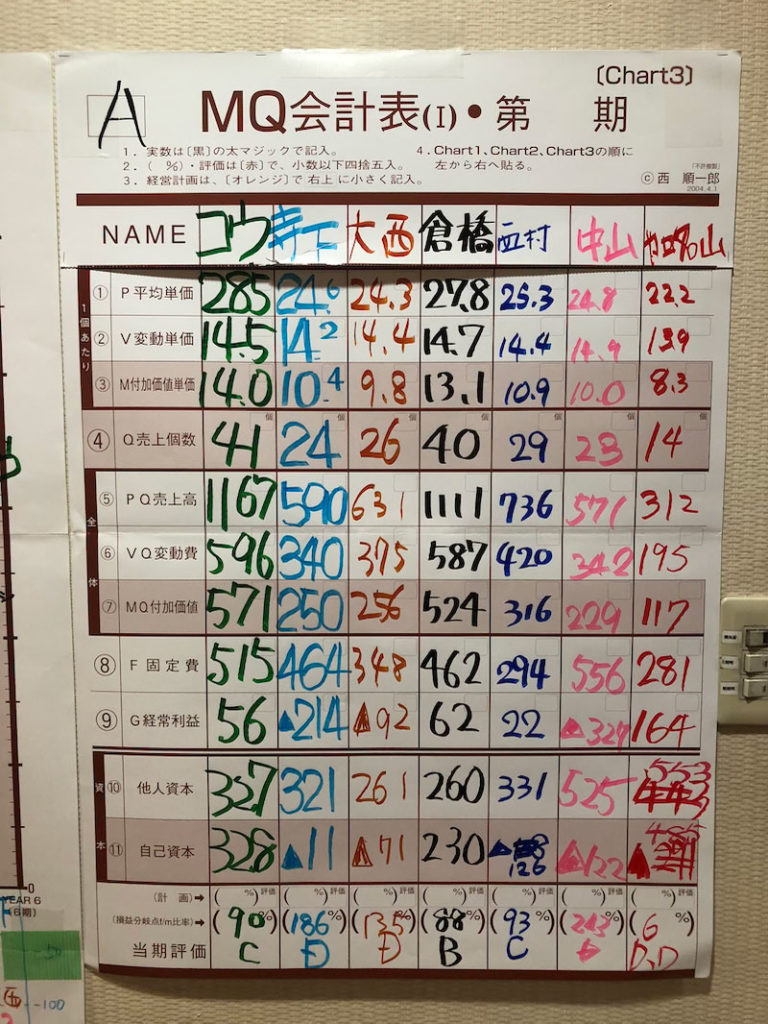 〔Chart3〕
A MQ会計表(I)・第 期
1．実数は〔黒〕の太マジックで記入。
2．( %)・評価は〔赤〕で、小数以下四捨五入。
3．経営計画は、〔オレンジ〕で右上に小さく記入。
4．Chart1、Chart2、Chart3の順に
左から右へ貼る。
「不許複製」
©西 順一郎
2004.4.1
NAME コウ 寺下 大西 倉橋 西村 中山 和歌山
1個あたり
① P平均単価 285 24.6 24.3 27.8 25.3 24.8 22.2
② V変動単価 14.5 14.2 14.4 14.7 14.4 14.9 13.9
③ M付加価値単価 14.0 10.4 9.8 13.1 10.9 10.0 8.3
個 個 個 個 個 個 個
④ Q売上個数 41 24 26 40 29 23 14
全体
⑤ PQ売上高 1167 590 631 1111 736 571 312
⑥ VQ変動費 596 340 375 587 420 342 195
⑦ MQ付加価値 571 250 256 524 316 229 117
⑧ F固定費 515 464 348 462 294 556 281
⑨ G経常利益 56 ▲214 ▲92 62 22 ▲327 164
資本
⑩ 他人資本 357 321 261 260 331 525 553
⑪ 自己資本 328 ▲11 ▲71 230 ▲126 ▲122 ▲
(計画)➡ ( %)評価 ( %)評価 ( %)評価 ( %)評価 ( %)評価 ( %)評価 ( %)評価
(損益分岐点f/m比率)➡ (90%) (186%) (135%) (88%) (93%) (243%) (6 %)
当期評価 C D D B C D D.D
0
YEAR 6
(6期)
-100